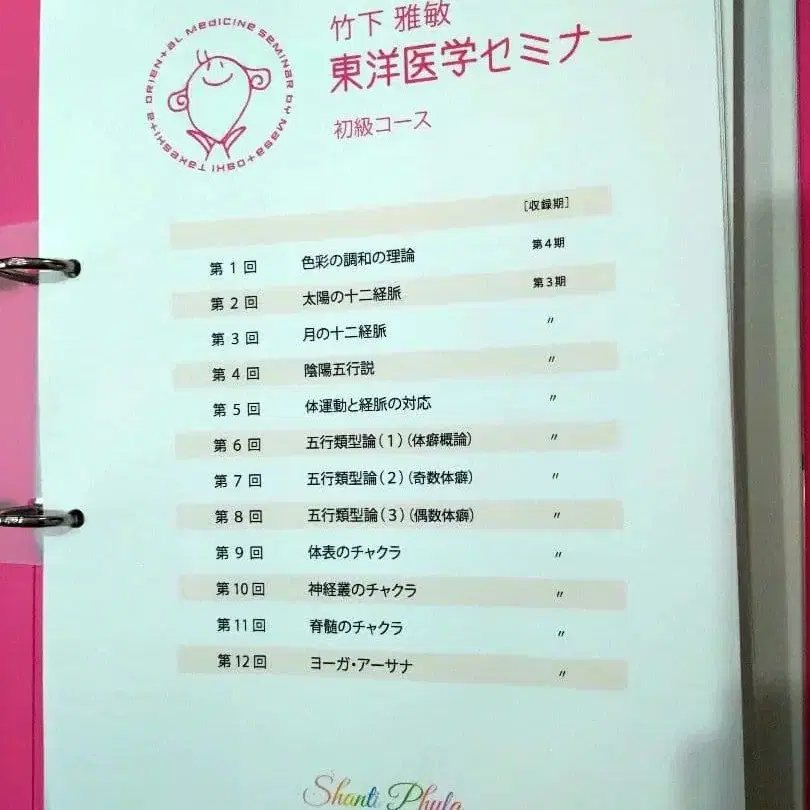 ORIENTAL MEDICINE SEMINAR BY MASATOSHI TAKESHITA
竹下 雅敏
東洋医学セミナー
初級コース
[収録期]
第 1 回 色彩の調和の理論 第4期
第 2 回 太陽の十二経脈 第3期
第 3 回 月の十二経脈 〃
第 4 回 陰陽五行説 〃
第 5 回 体運動と経脈の対応 〃
第 6 回 五行類型論(1)(体癖概論) 〃
第 7 回 五行類型論(2)(奇数体癖) 〃
第 8 回 五行類型論(3)(偶数体癖) 〃
第 9 回 体表のチャクラ 〃
第10回 神経叢のチャクラ 〃
第11回 脊髄のチャクラ 〃
第12回 ヨーガ・アーサナ 〃
Shanti Phula